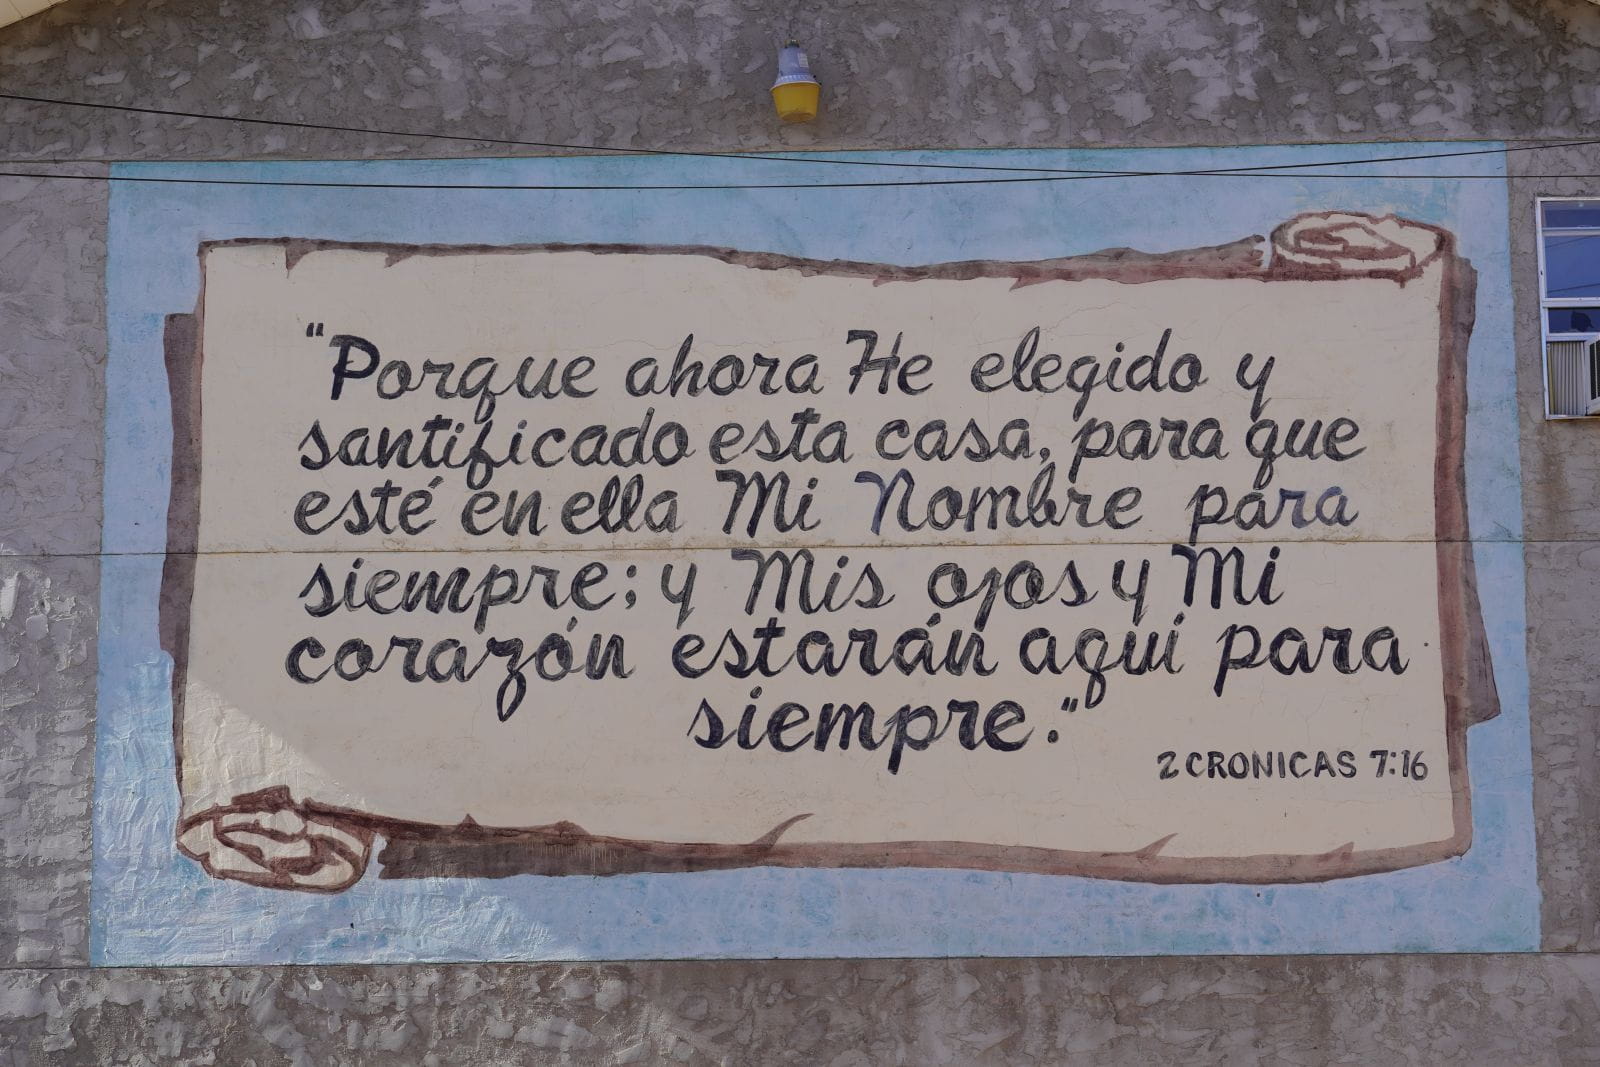 "Porque ahora He elegido y
santificado esta casa, para que
esté en ella Mi Nombre para
siempre; y Mis ojos y Mi
corazón estarán aquí para
siempre."
2 CRONICAS 7:16